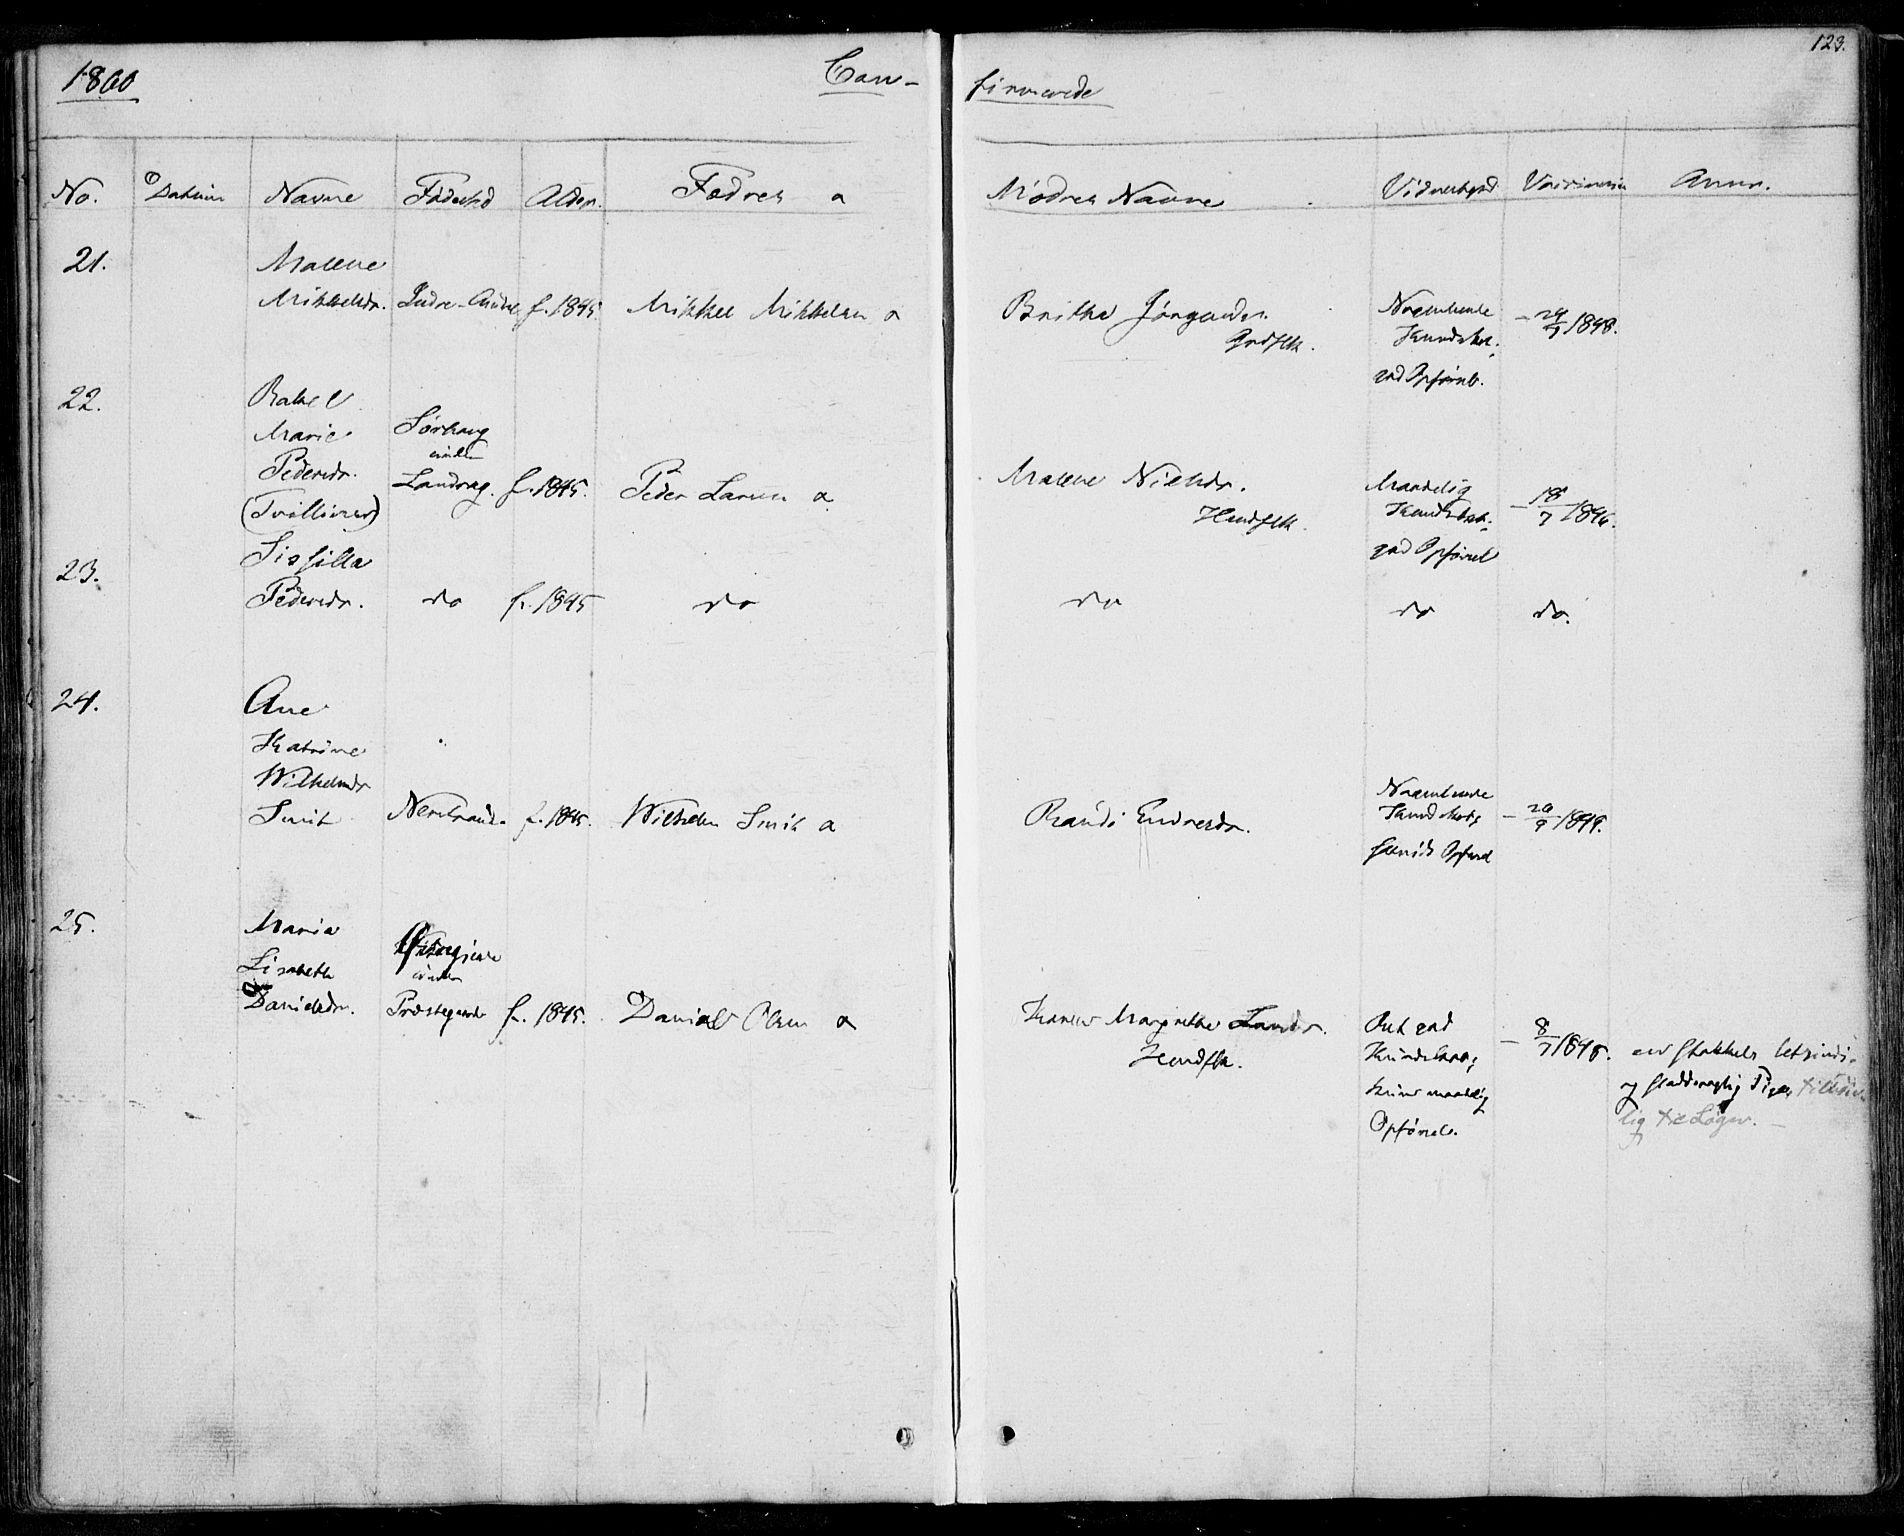 1860 Con- firmerede 123.
No. Datum Navne Fødested Alder. Fædres & Mødres Navne Vidnesbyrd Vaccination Anm.
21. Malene
Mikkelsdr. Indre- f. 1845. Mikkel Mikkelsen & Britha Jørgensdr.
Grdflk.
Nogenlunde
Kundskab,
god Opførsel.
1848.
22. Rakel
Marie
Pedersdr.
(Tvillinger)
Sørhaug
under
Landvog. f. 1845. Peder Larsen & Malene Nielsdr.
Husflk.
Maadelig
Kundskab,
god Opførsel
- 18/7 1846.
23. Sissilla
Pedersdr. do f. 1845 do do do do.
24. Ane
Katrine
Wilhelmsdr
Smit f. 1845. Wilhelm Smit & Randi Endresdr.
Nogenlunde
Kundskab,
Opførsel
- 20/9 1849.
25. Maria
Lisabeth
Danielsdr.
under
Præstegaarden f. 1845. Daniel Olsen & Karen Margrethe Larsdr.
Husflk.
Ret god
Kundskab,
kun maadelig
Opførsel.
- 8/7 1848. en stakkels letsindig
og sladdervorn Pige, tilbøie-
lig til Løgn. -